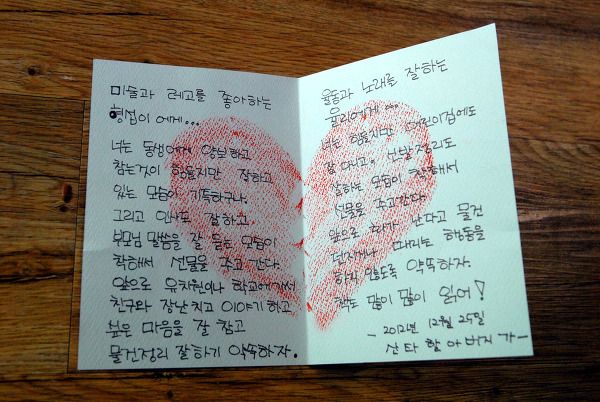 미술과 레고를 좋아하는
형섭이에게...
너는 동생에게 양보하고
참는것이 힘들지만 잘하고
있는 모습이 기특하구나.
그리고 인사도 잘하고
부모님 말씀을 잘 듣는 모습이
착해서 선물을 주고 간다.
앞으로 유치원이나 학교에가서
친구와 장난치고 이야기 하고
싶은 마음을 잘 참고
물건정리 잘하기 약속하자.
율동과 노래를 잘하는
율리에게...
너는 힘들지만 어린이집에도
잘 다니고, 신발정리도
잘하는 모습이 착해서
선물을 주고간다.
앞으로 화가 난다고 물건
던지거나 때리는 행동을
하지 않도록 약속하자.
책도 많이 많이 읽어!
- 2012년 12월 25일
산타 할아버지 가 -